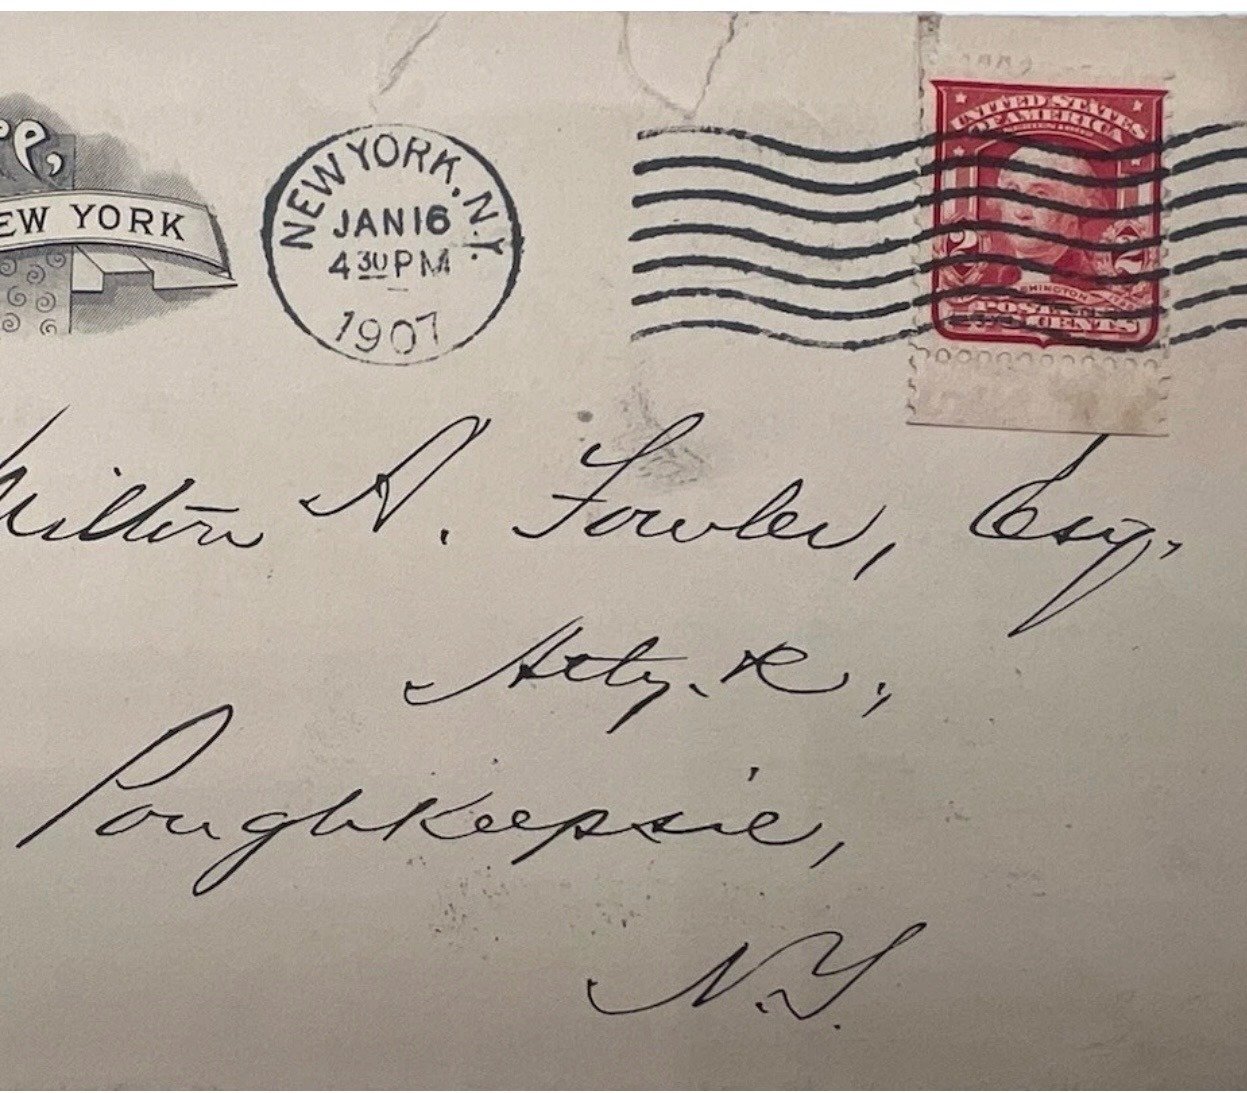 NEW YORK
NEW YORK, N.Y.
JAN 16
4 30 PM
1907
UNITED STATES
OF AMERICA
2 2
POSTAGE
TWO CENTS
Milton A. Fowler, Esq.
Atty. &c.,
Poughkeepsie,
N.Y.